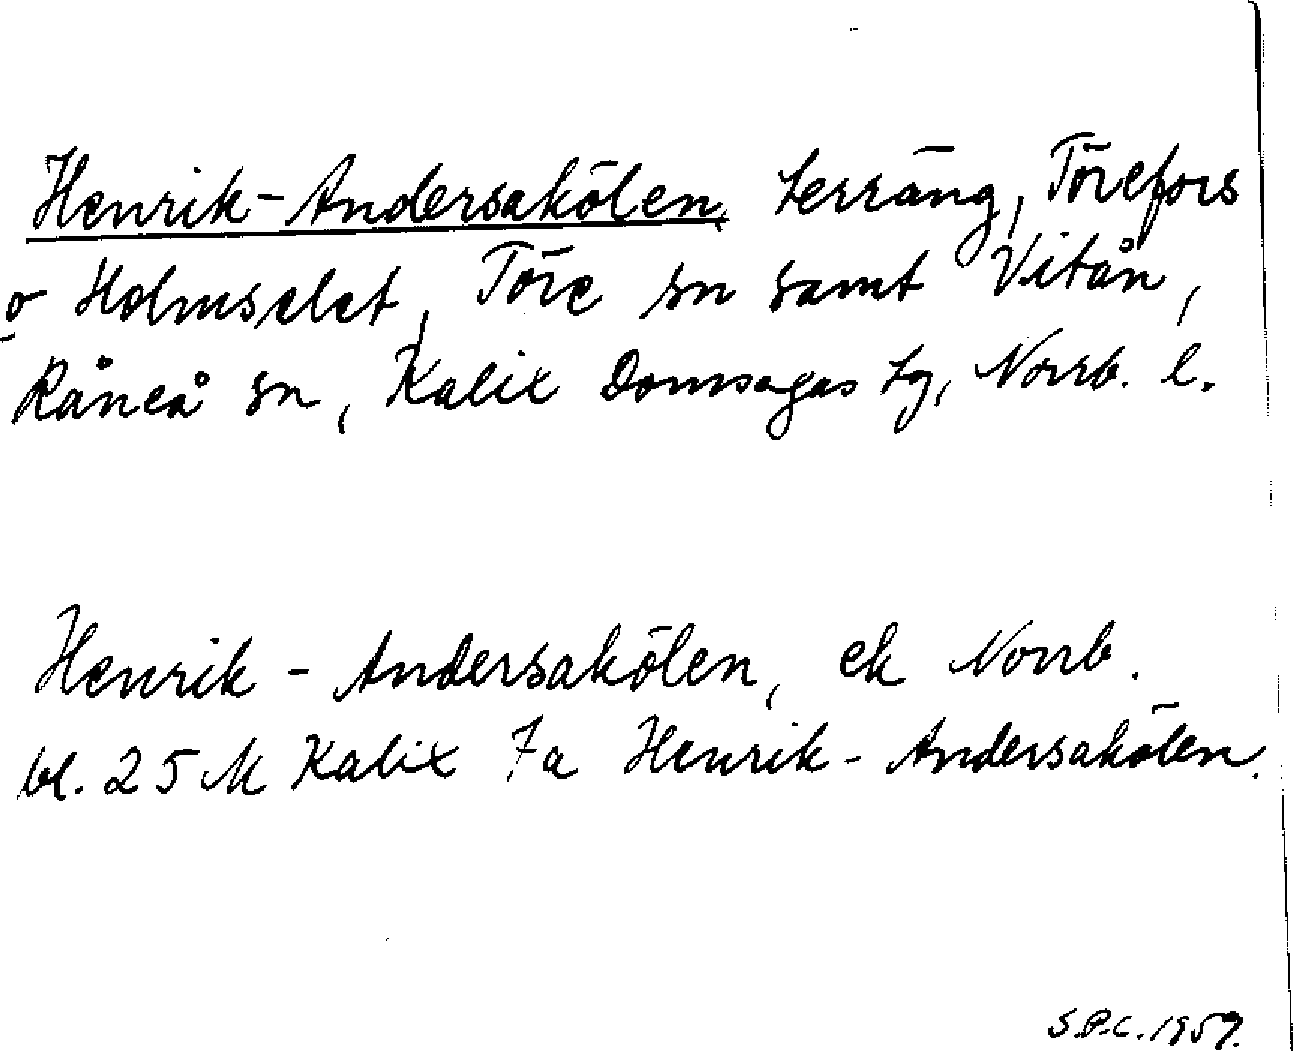 Henrik-Andersakölen, terräng, Törefors
o Holmselet, Töre sn samt Vitån,
Råneå sn, Kalix Domsagas tg, Norrb. l.
Henrik - Andersakölen, ek Norrb.
bl. 25 M Kalix 7a Henrik - Andersakölen.
S.P.C. 1959.